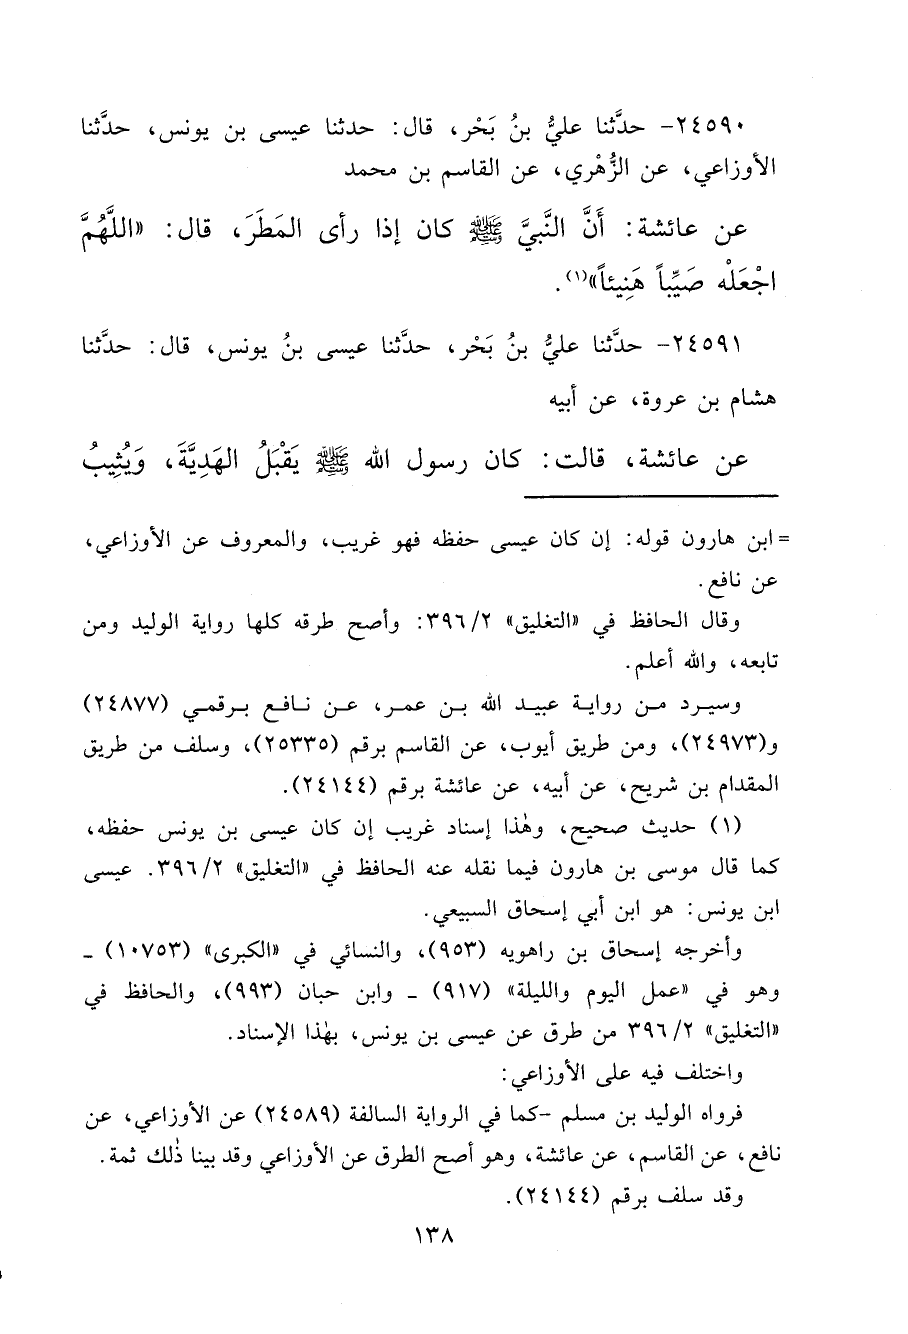 ٢٤٥٩٠- حدَّثنا عليُّ بنُ بَحْر، قال: حدثنا عيسى بن يونس، حدَّثنا
الأوزاعي، عن الزُّهْري، عن القاسم بن محمد
عن عائشة: أَنَّ النَّبيَّ ﷺ كان إذا رأى المَطَرَ، قال: «اللَّهُمَّ
اجْعَلْه صَيِّباً هَنِيئاً»(١).
٢٤٥٩١- حدَّثنا عليُّ بنُ بَحْر، حدَّثنا عيسى بنُ يونس، قال: حدَّثنا
هشام بن عروة، عن أبيه
عن عائشة، قالت: كان رسول الله ﷺ يَقْبَلُ الهَدِيَّةَ، وَيُثِيبُ
= ابن هارون قوله: إن كان عيسى حفظه فهو غريب، والمعروف عن الأوزاعي،
عن نافع.
وقال الحافظ في «التغليق» ٣٩٦/٢: وأصح طرقه كلها رواية الوليد ومن
تابعه، والله أعلم.
وسيرد من رواية عبيد الله بن عمر، عن نافع برقمي (٢٤٨٧٧)
و(٢٤٩٧٣)، ومن طريق أيوب، عن القاسم برقم (٢٥٣٣٥)، وسلف من طريق
المقدام بن شريح، عن أبيه، عن عائشة برقم (٢٤١٤٤).
(١) حديث صحيح، وهٰذا إسناد غريب إن كان عيسى بن يونس حفظه،
كما قال موسى بن هارون فيما نقله عنه الحافظ في «التغليق» ٣٩٦/٢. عيسى
ابن يونس: هو ابن أبي إسحاق السبيعي.
وأخرجه إسحاق بن راهويه (٩٥٣)، والنسائي في «الكبرى» (١٠٧٥٣) ـ
وهو في «عمل اليوم والليلة» (٩١٧) ـ وابن حبان (٩٩٣)، والحافظ في
«التغليق» ٣٩٦/٢ من طرق عن عيسى بن يونس، بهٰذا الإسناد.
واختلف فيه على الأوزاعي:
فرواه الوليد بن مسلم -كما في الرواية السالفة (٢٤٥٨٩) عن الأوزاعي، عن
نافع، عن القاسم، عن عائشة، وهو أصح الطرق عن الأوزاعي وقد بينا ذٰلك ثمة.
وقد سلف برقم (٢٤١٤٤).
١٣٨